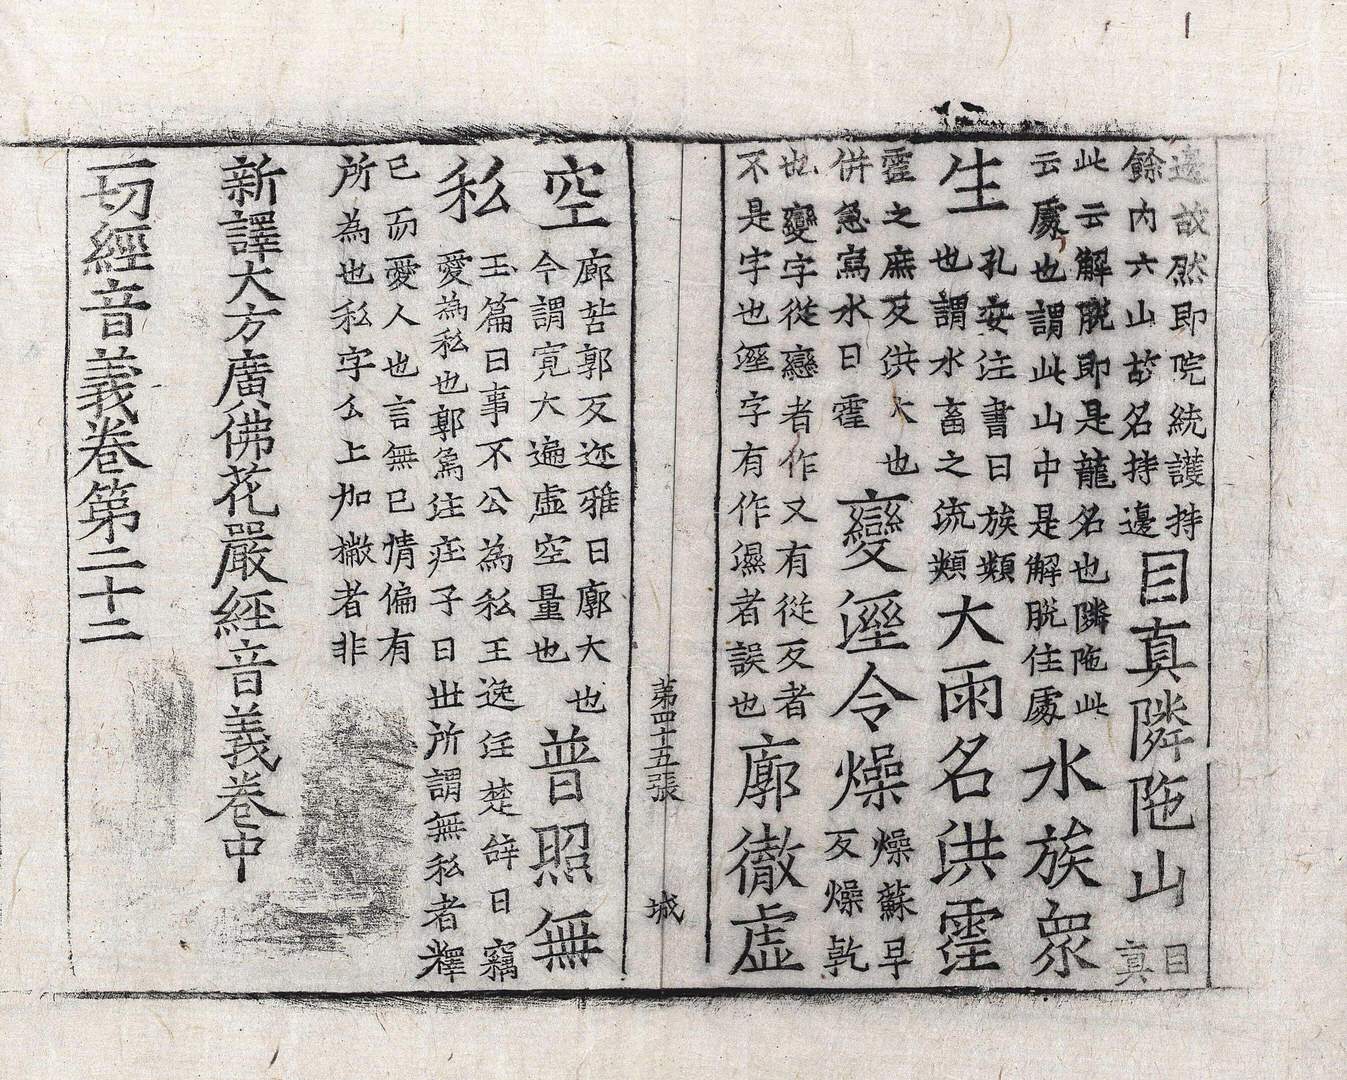 邊故然即院統護持
餘内六山故名持邊
目真隣陁山
目
真
此云解脱即是龍名也隣陁此
云處也謂此山中是解脱住處
水族衆
生
孔安注書曰族類
也謂水畜之流類
大雨名洪霔
霔之庶反洪大也
併急寫水曰霔
變溼令燥
燥蘇早
反燥乹
也變字從䜌者作又有從反者
不是字也溼字有作濕者誤也
廓徹虛
第四十五張
城
空
廓苦郭反迩雅曰廓大也
今謂寛大遍虛空量也
普照無
私
玉篇曰事不公為私王逸注楚辝曰竊
愛為私也郭象注庄子曰世所謂無私者釋
已而愛人也言無已情偏有
所為也私字厶上加撇者非
新譯大方廣佛花嚴經音義卷中
一切經音義卷第二十二